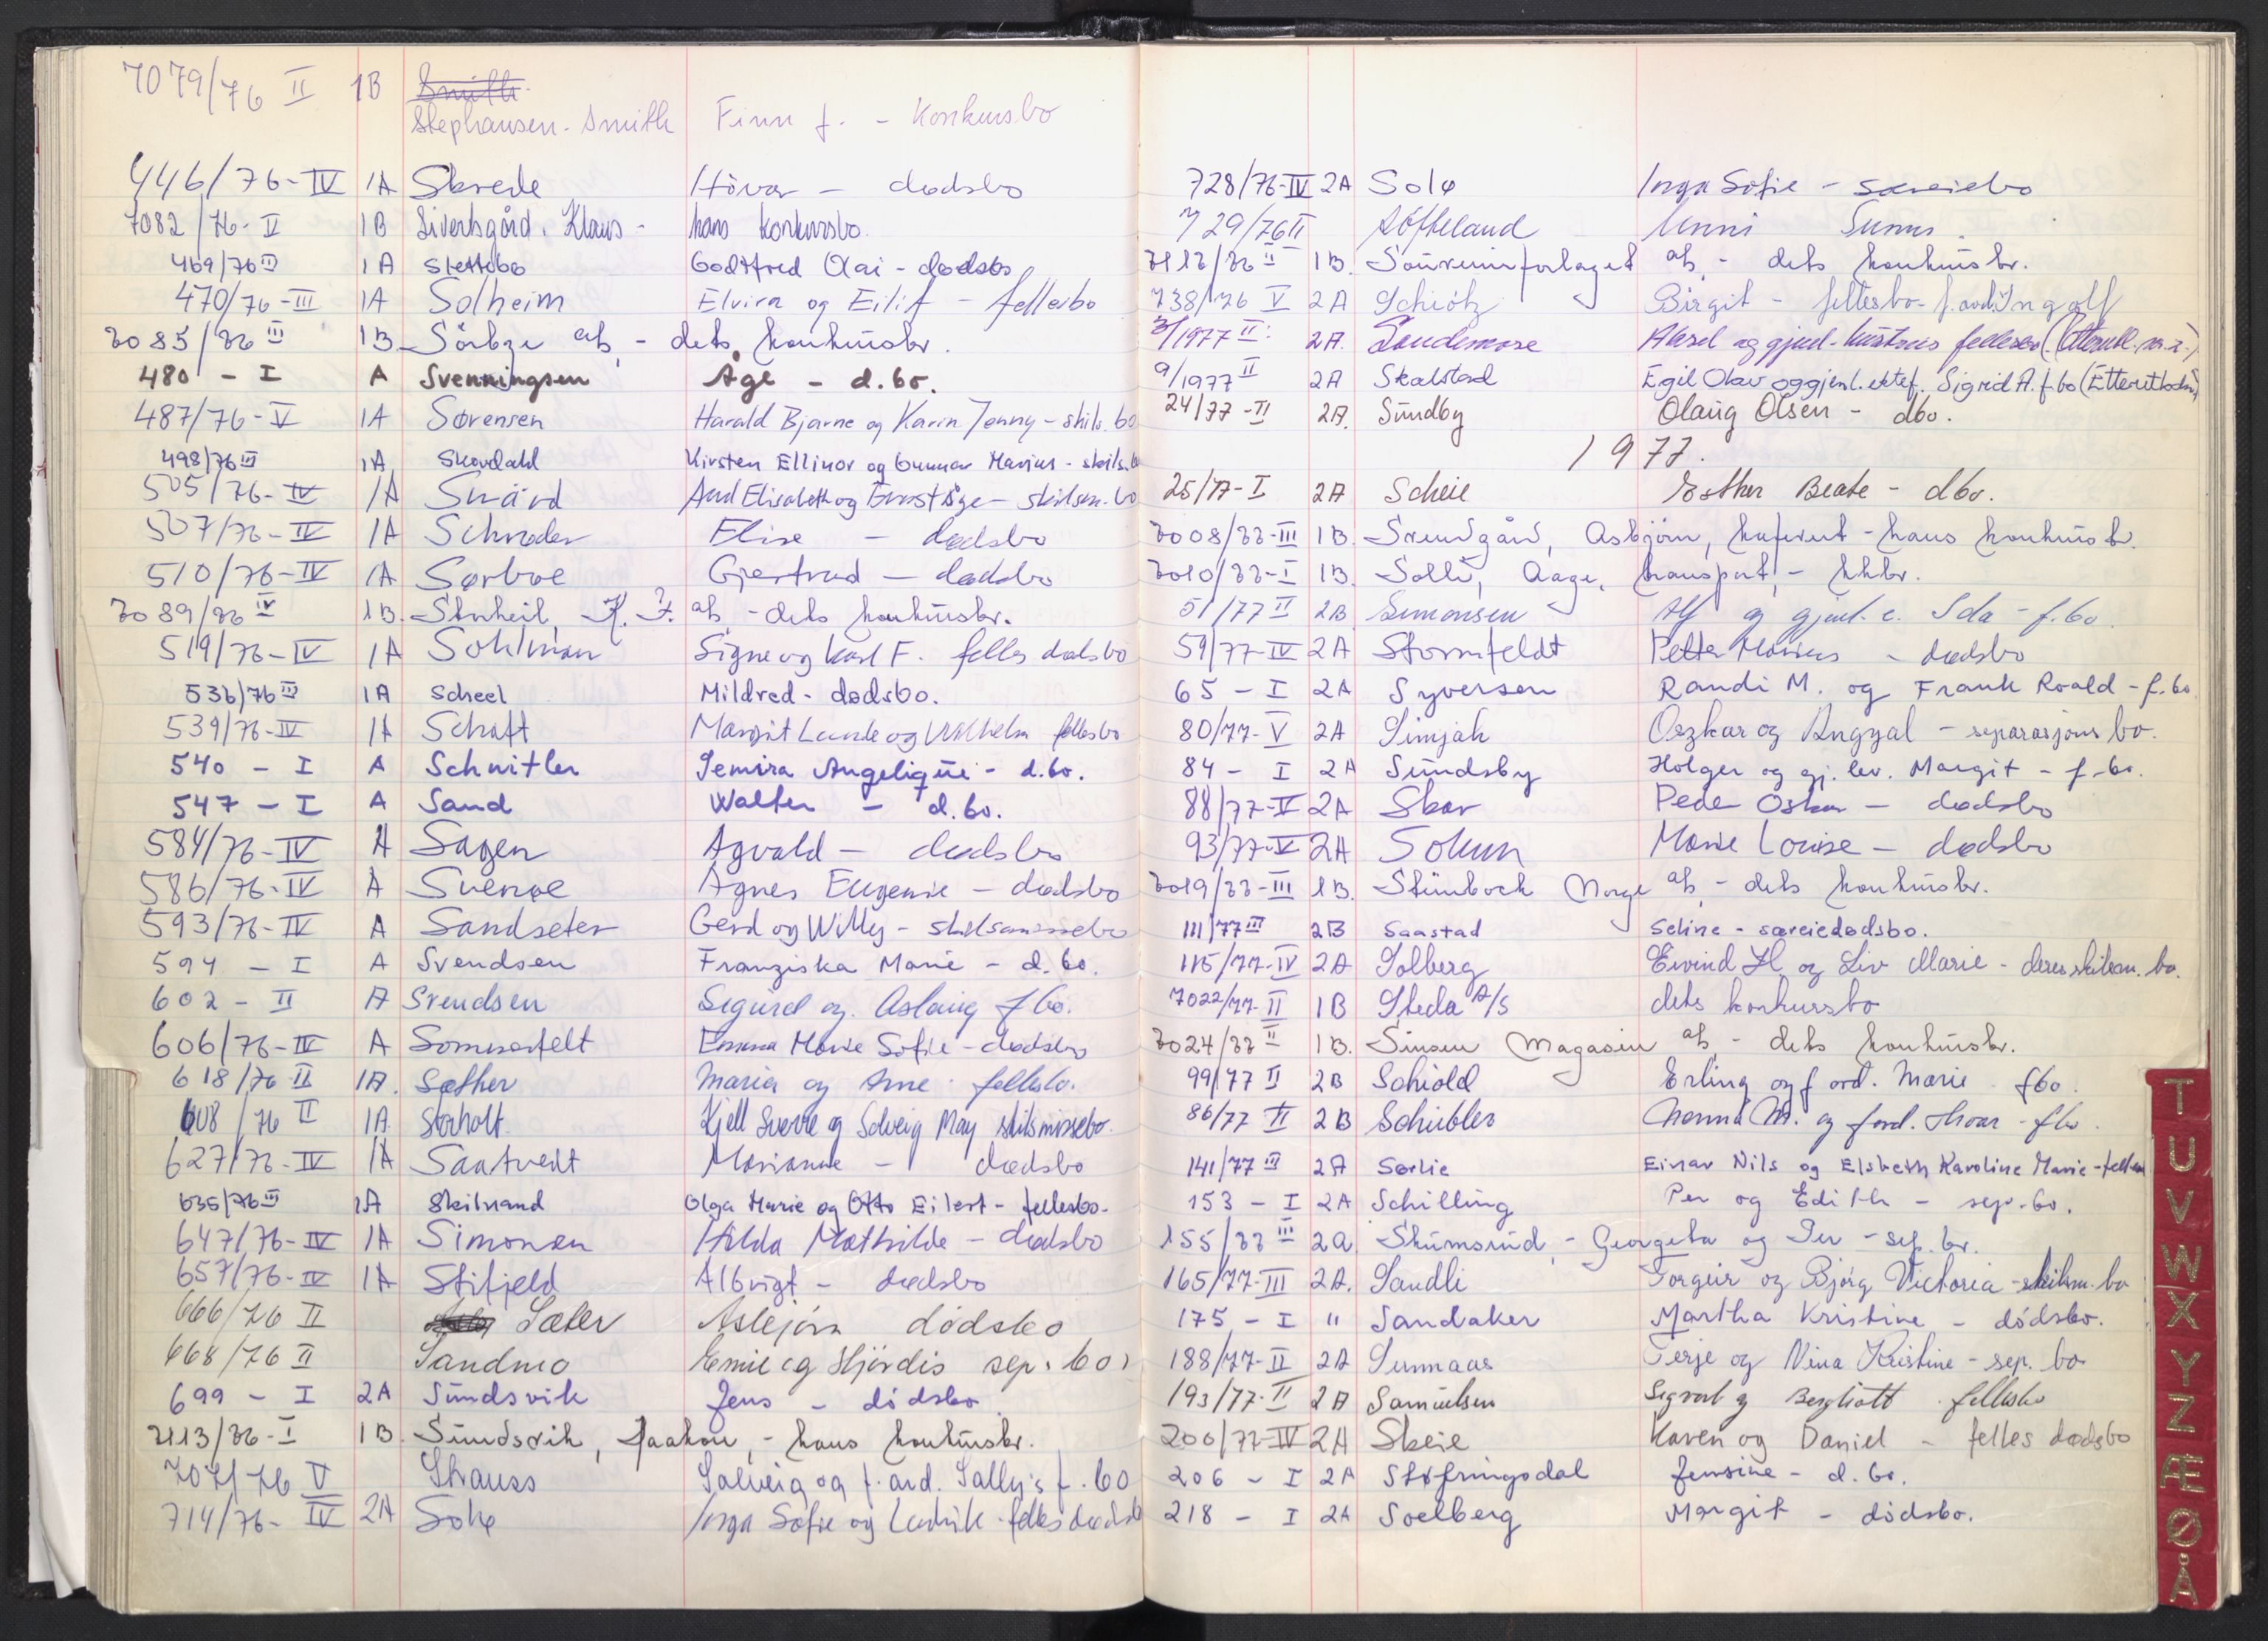 7079/76 II 1B Smith
Stephansen-Smith Finn f. - Konkursbo
446/76-IV 1A Skrede Håvar - dødsbo
7082/76-II 1B Sivertsgård, Klaus - hans konkursbo.
469/76 III 1A Slettebø Godtfred Olai - dødsbo
470/76-III 1A Solheim Elvira og Eilif - fellesbo
7085/76 III 1B Sörbye a/s - dets konkursbo.
480 - I A Svenningsen Åge - d.bo.
487/76-V 1A Sørensen Harald Bjarne og Karin Jenny - skils.bo
498/76 III 1A Skovdahl Kirsten Ellinor og Gunnar Marius - skils.bo
505/76-IV 1A Swärd Aud Elisabeth og Ernst Åge - skilsm.bo
507/76-IV 1A Schrøder Elise - dødsbo
510/76-IV 1A Sørboe Gjertrud - dødsbo
7089/76 IV 1B. a/s - dets konkursbo.
519/76-IV 1A Sohlman Signe og Karl F. felles dødsbo
536/76 III 1A Scheel Mildred - dødsbo.
539/76-IV 1A Schaft Margit Lunde og Wilhelm fellesbo
540 - I A Schnitler Semira Angelique - d.bo.
547 - I A Sand Walter - d.bo.
584/76-IV A Sagen Agvald - dødsbo
586/76-IV A Svenøe Agnes Eugenie - dødsbo
593/76-IV A Sandseter Gerd og Willy - skilsmissebo
594 - I A Svendsen Franziska Marie - d.bo.
602 - II A Svendsen Sigurd og Aslaug f.bo.
606/76-IV A Sommerfelt Emma Marie Sofie - dødsbo
618/76 II 1A. Sæther Maria og Arne fellesbo.
608/76 II 1A Sørholt. Kjell Sverre og Solveig May skilsmissebo.
627/76-IV 1A Saatvedt Marianne - dødsbo
635/76 III 1A Skilnand Olga Marie og Otto Eilert - fellesbo-
647/76-IV 1A Simonsen Hilda Mathilde - dødsbo
657/76-IV 1A Stifjeld Albrigt - dødsbo
666/76 II Sæter Asbjørn dødsbo
668/76 II Sandmo Emil og Hjørdis sep.bo.
699 - I 2A Sundsvik Jens - dødsbo
7113/76-I 1B. Sundsvik, Haakon, - hans konkursbo.
707/76 V Strauss Solveig og f.avd. Sally's f.bo
714/76-IV 2A Solø Inga Sofie og Ludvik - felles dødsbo
728/76-IV 2A Solø Inga Sofie - særeiebo
729/76 II Søfteland Unni
7113/76 II 1B. Souvenirforlaget a/s - dets konkursbo.
738/76 V 2A Schiøtz Birgit - fellesbo - f.avd. Ingolf
3/1977 II. 2A. Sandemose Aksel og gjenl.
9/1977 II 2A Skalstad Egil Olav og gjenl. ektef. Sigrid A. f.bo
24/77-II 2A. Sundby Olaug Olsen - dbo.
1977.
25/77-I 2A Scheie Esther Beate - dbo.
7008/77-III 1B. Svendgård, Asbjörn, - hans konkursbo.
7010/77-I 1B. Solli, Aage, transport, - kkbo.
51/77 II 2B Simonsen Alf og gjenl. e. Ida - f.bo.
59/77-IV 2A Stormfeldt Petter Marius - dødsbo
65 - I 2A Syversen Randi M. og Frank Roald - f.bo.
80/77-V 2A Simjah Oszkar og Angyal - separasjons bo.
84 - I 2A Sundsby Holger og gj.lev. Margit - f.bo.
88/77-IV 2A Skar Peder Oskar - dødsbo
93/77-V 2A Solum Marie Louise - dødsbo
7019/77-III 1B. Steinbock Norge a/s - dets konkursbo.
111/77 III 2B Saastad Seline - særeiedødsbo.
115/77-IV 2A Solberg Eivind H og Liv Marie - deres skilsm. bo.
7022/77-II 1B Steda A/S dets konkursbo
7024/77 II 1B. Sinsen Magasin a/s - dets konkursbo.
99/77 II 2B Schiold Erling og f avd. Marie fbo.
86/77 II 2B Schübler Nanna M. og f avd. Hroar - fbo.
141/77 III 2A Sørlie Einar Nils og Elsbeth Karoline Marie - fellesbo
153 - I 2A Schilling Per og Edith - sep.bo.
155/77 III 2A Skumsrud, - Georgeta og Per - sep.bo.
165/77-III 2A. Sandli Torgeir og Bjørg Victoria - skilsm.bo
175 - I " Sandaker Martha Kristine - dødsbo.
188/77-II 2A Sunnaas Terje og Nina Kristine - sep. bo
193/77-II 2A Samuelsen Sigvart og Bergliott fellesbo
200/77-IV 2A Skeie Karen og Daniel - felles dødsbo
206 - I 2A Støfringsdal Jensine - d.bo.
218 - I 2A Soelberg Margit - dødsbo.
T
U
V
W
X
Y
Z
Æ
Ø
Å